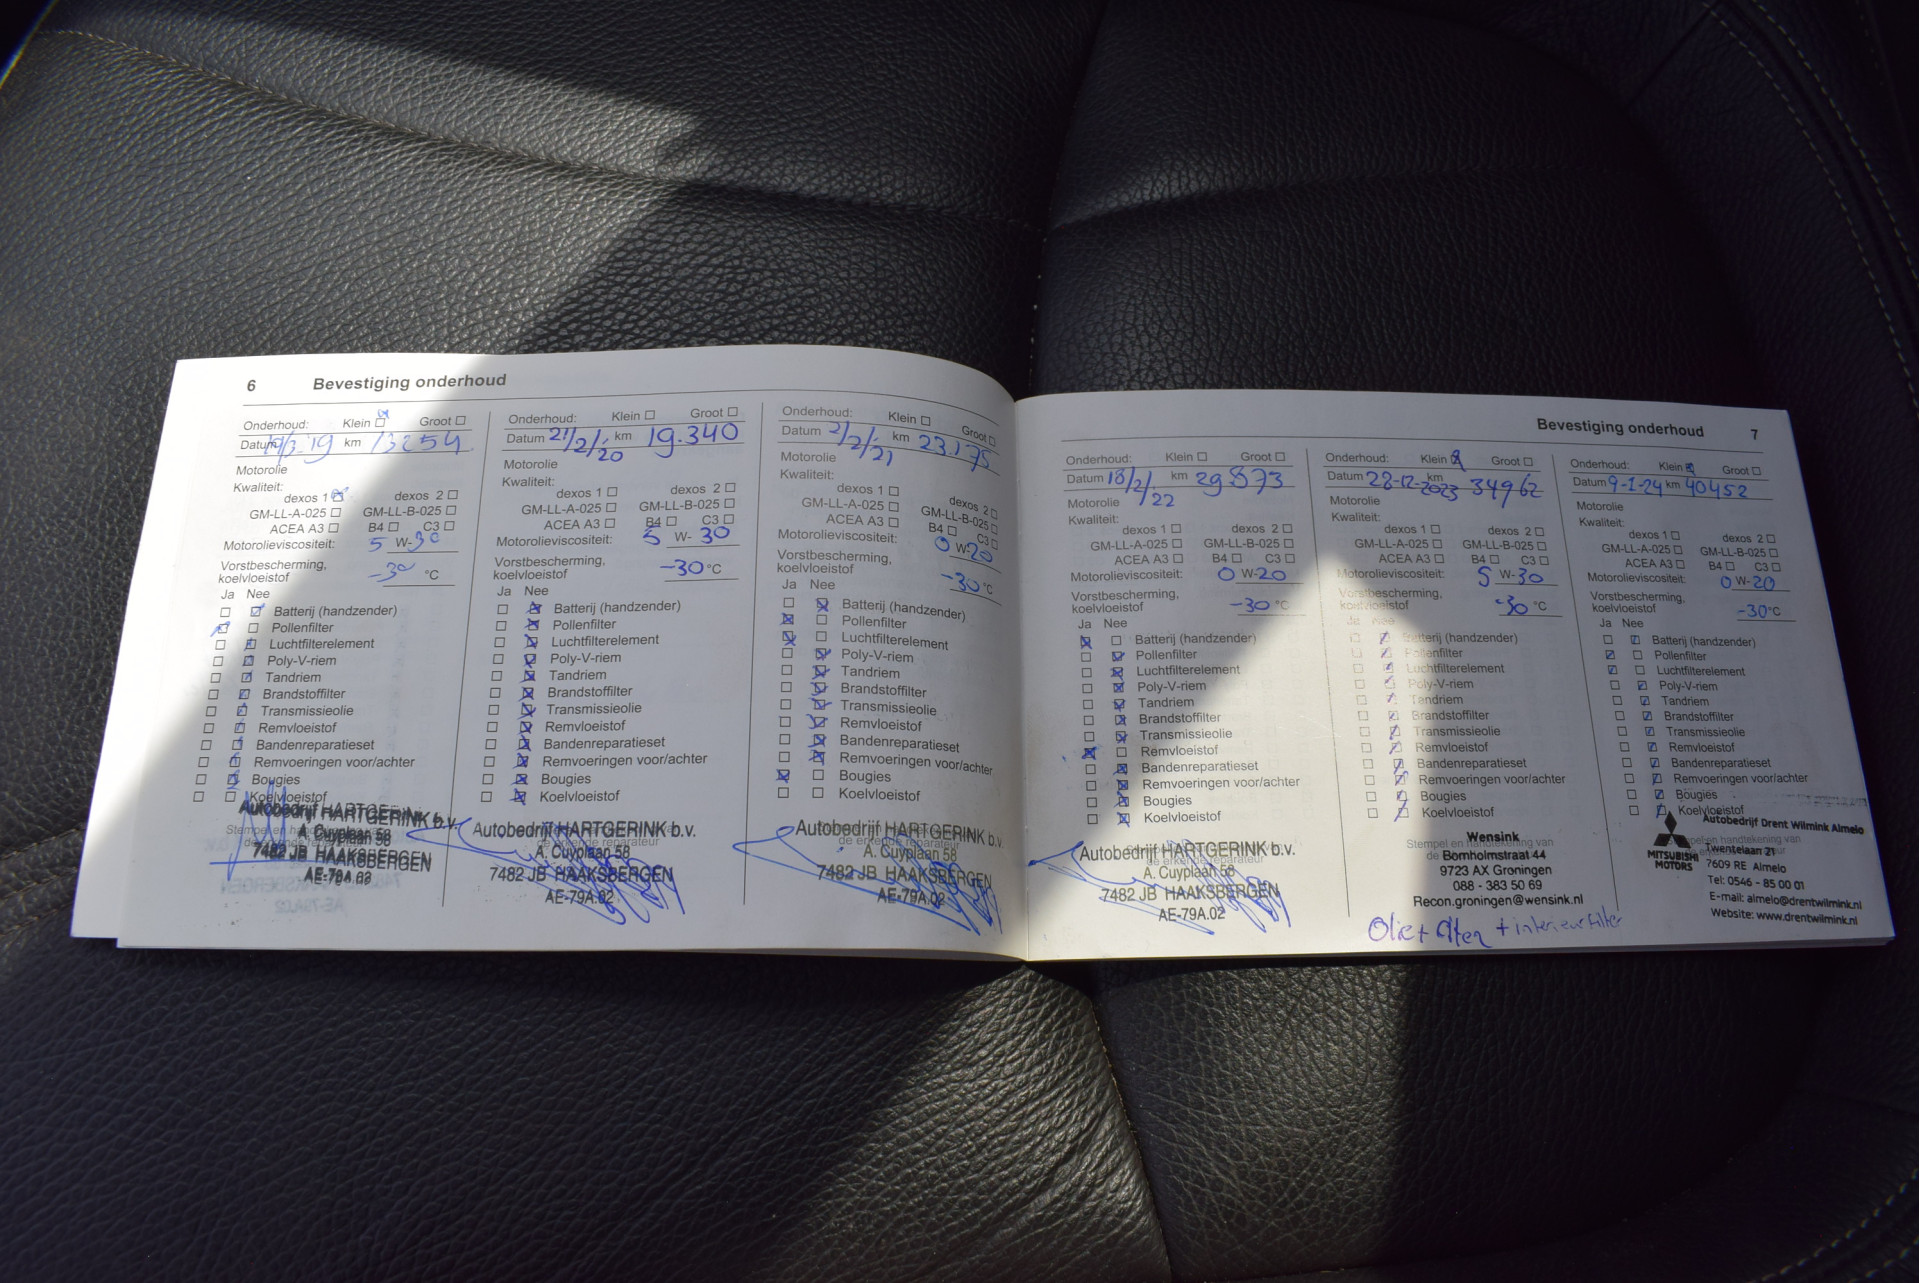 6 Bevestiging onderhoud
Onderhoud: Klein Groot
Datum 19/3/'19 km 13254
Motorolie
Kwaliteit:
dexos 1 dexos 2
GM-LL-A-025 GM-LL-B-025
ACEA A3 B4 C3
Motorolieviscositeit: 5 W-30
Vorstbescherming,
koelvloeistof -30 °C
Ja Nee
Batterij (handzender)
Pollenfilter
Luchtfilterelement
Poly-V-riem
Tandriem
Brandstoffilter
Transmissieolie
Remvloeistof
Bandenreparatieset
Remvoeringen voor/achter
Bougies
Koelvloeistof
Autobedrijf HARTGERINK b.v.
A. Cuyplaan 58
7482 JB HAAKSBERGEN
AE-79A.02
Onderhoud: Klein Groot
Datum 21/2/'20 km 19.340
Motorolie
Kwaliteit:
dexos 1 dexos 2
GM-LL-A-025 GM-LL-B-025
ACEA A3 B4 C3
Motorolieviscositeit: 5 W- 30
Vorstbescherming,
koelvloeistof -30 °C
Ja Nee
Batterij (handzender)
Pollenfilter
Luchtfilterelement
Poly-V-riem
Tandriem
Brandstoffilter
Transmissieolie
Remvloeistof
Bandenreparatieset
Remvoeringen voor/achter
Bougies
Koelvloeistof
Autobedrijf HARTGERINK b.v.
de erkende reparateur
A. Cuyplaan 58
7482 JB HAAKSBERGEN
AE-79A.02
Onderhoud: Klein Groot
Datum 2/2/'21 km 23.175
Motorolie
Kwaliteit:
dexos 1 dexos 2
GM-LL-A-025 GM-LL-B-025
ACEA A3 B4 C3
Motorolieviscositeit: 0 W-20
Vorstbescherming,
koelvloeistof -30 °C
Ja Nee
Batterij (handzender)
Pollenfilter
Luchtfilterelement
Poly-V-riem
Tandriem
Brandstoffilter
Transmissieolie
Remvloeistof
Bandenreparatieset
Remvoeringen voor/achter
Bougies
Koelvloeistof
Autobedrijf HARTGERINK b.v.
de erkende reparateur
A. Cuyplaan 58
7482 JB HAAKSBERGEN
AE-79A.02
Bevestiging onderhoud 7
Onderhoud: Klein Groot
Datum 18/2/22 km 29873
Motorolie
Kwaliteit:
dexos 1 dexos 2
GM-LL-A-025 GM-LL-B-025
ACEA A3 B4 C3
Motorolieviscositeit: 0 W-20
Vorstbescherming,
koelvloeistof -30 °C
Ja Nee
Batterij (handzender)
Pollenfilter
Luchtfilterelement
Poly-V-riem
Tandriem
Brandstoffilter
Transmissieolie
Remvloeistof
Bandenreparatieset
Remvoeringen voor/achter
Bougies
Koelvloeistof
Autobedrijf HARTGERINK b.v.
de erkende reparateur
A. Cuyplaan 58
7482 JB HAAKSBERGEN
AE-79A.02
Onderhoud: Klein Groot
Datum 28-12-2023 km 34962
Motorolie
Kwaliteit:
dexos 1 dexos 2
GM-LL-A-025 GM-LL-B-025
ACEA A3 B4 C3
Motorolieviscositeit: 5 W-30
Vorstbescherming,
koelvloeistof -30 °C
Ja Nee
Batterij (handzender)
Pollenfilter
Luchtfilterelement
Poly-V-riem
Tandriem
Brandstoffilter
Transmissieolie
Remvloeistof
Bandenreparatieset
Remvoeringen voor/achter
Bougies
Koelvloeistof
Wensink
Stempel en handtekening van
Bornholmstraat 44
9723 AX Groningen
088 - 383 50 69
Recon.groningen@wensink.nl
Olie+filter + interieurfilter
Onderhoud: Klein Groot
Datum 9-1-24 km 40452
Motorolie
Kwaliteit:
dexos 1 dexos 2
GM-LL-A-025 GM-LL-B-025
ACEA A3 B4 C3
Motorolieviscositeit: 0 W-20
Vorstbescherming,
koelvloeistof -30 °C
Ja Nee
Batterij (handzender)
Pollenfilter
Luchtfilterelement
Poly-V-riem
Tandriem
Brandstoffilter
Transmissieolie
Remvloeistof
Bandenreparatieset
Remvoeringen voor/achter
Bougies
Koelvloeistof
MITSUBISHI
MOTORS
Autobedrijf Drent Wilmink Almelo
Twentelaan 21
7609 RE Almelo
Tel: 0546 - 85 00 01
E-mail: almelo@drentwilmink.nl
Website: www.drentwilmink.nl